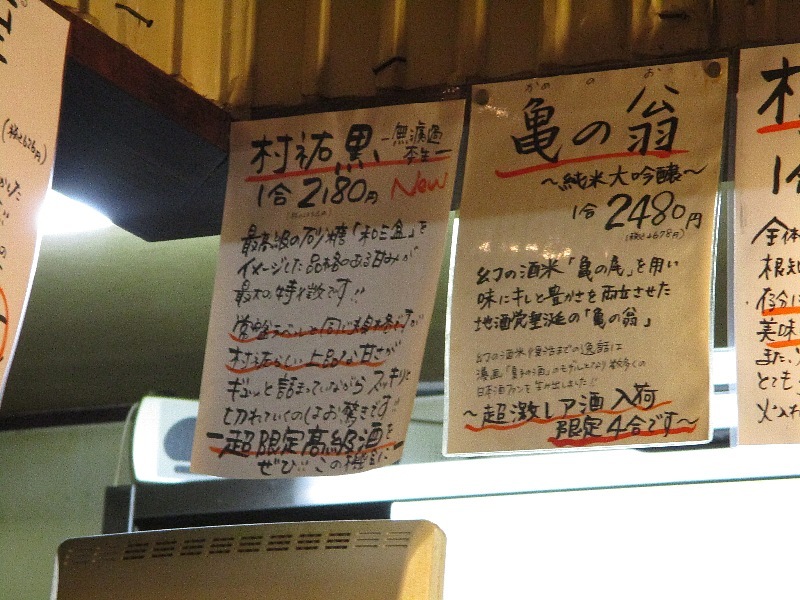 (税込2678円)
村祐 黒
無濾過
本生
1合 2180円 New
最高級の砂糖「和三盆」を
イメージした品格のある甘みが
最大の特徴です!!
常盤ラベルと同じ規格ですが
村祐らしい上品な甘さが
ギュッと詰まっていながら スッキリと
切れていくのはお驚きです!!
超限定高級酒を
ぜひ!!この機会に
かめ の お
亀の翁
〜純米大吟醸〜
1合 2480円
(税込2678円)
幻の酒米「亀の尾」を用い
味にキレと豊かさを両立させた
地酒党聖誕の「亀の翁」
幻の酒米復活までの逸話は
漫画「夏子の酒」のモデルとなり数多くの
日本酒ファンを生み出しました!!
〜超激レア酒 入荷
限定4合です〜
村
1合
全体
根知
存分に
美味
また、
とても
火入れ